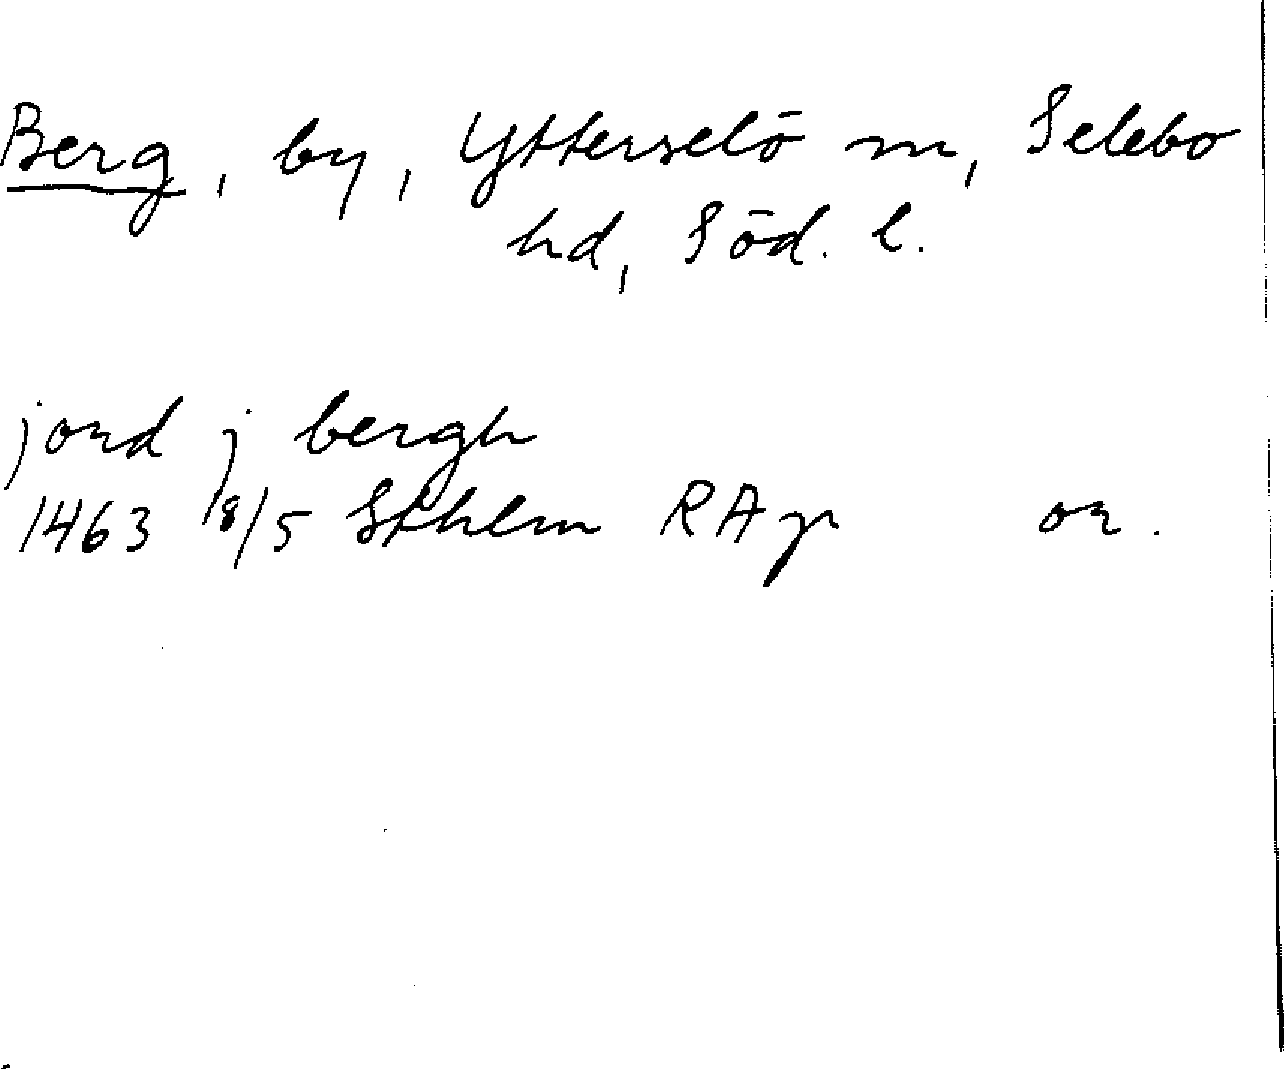 Berg, by, Ytterselö sn, Selebo
hd, Söd. l.
jord j bergh
1463 18/5 Sthlm RAp or.